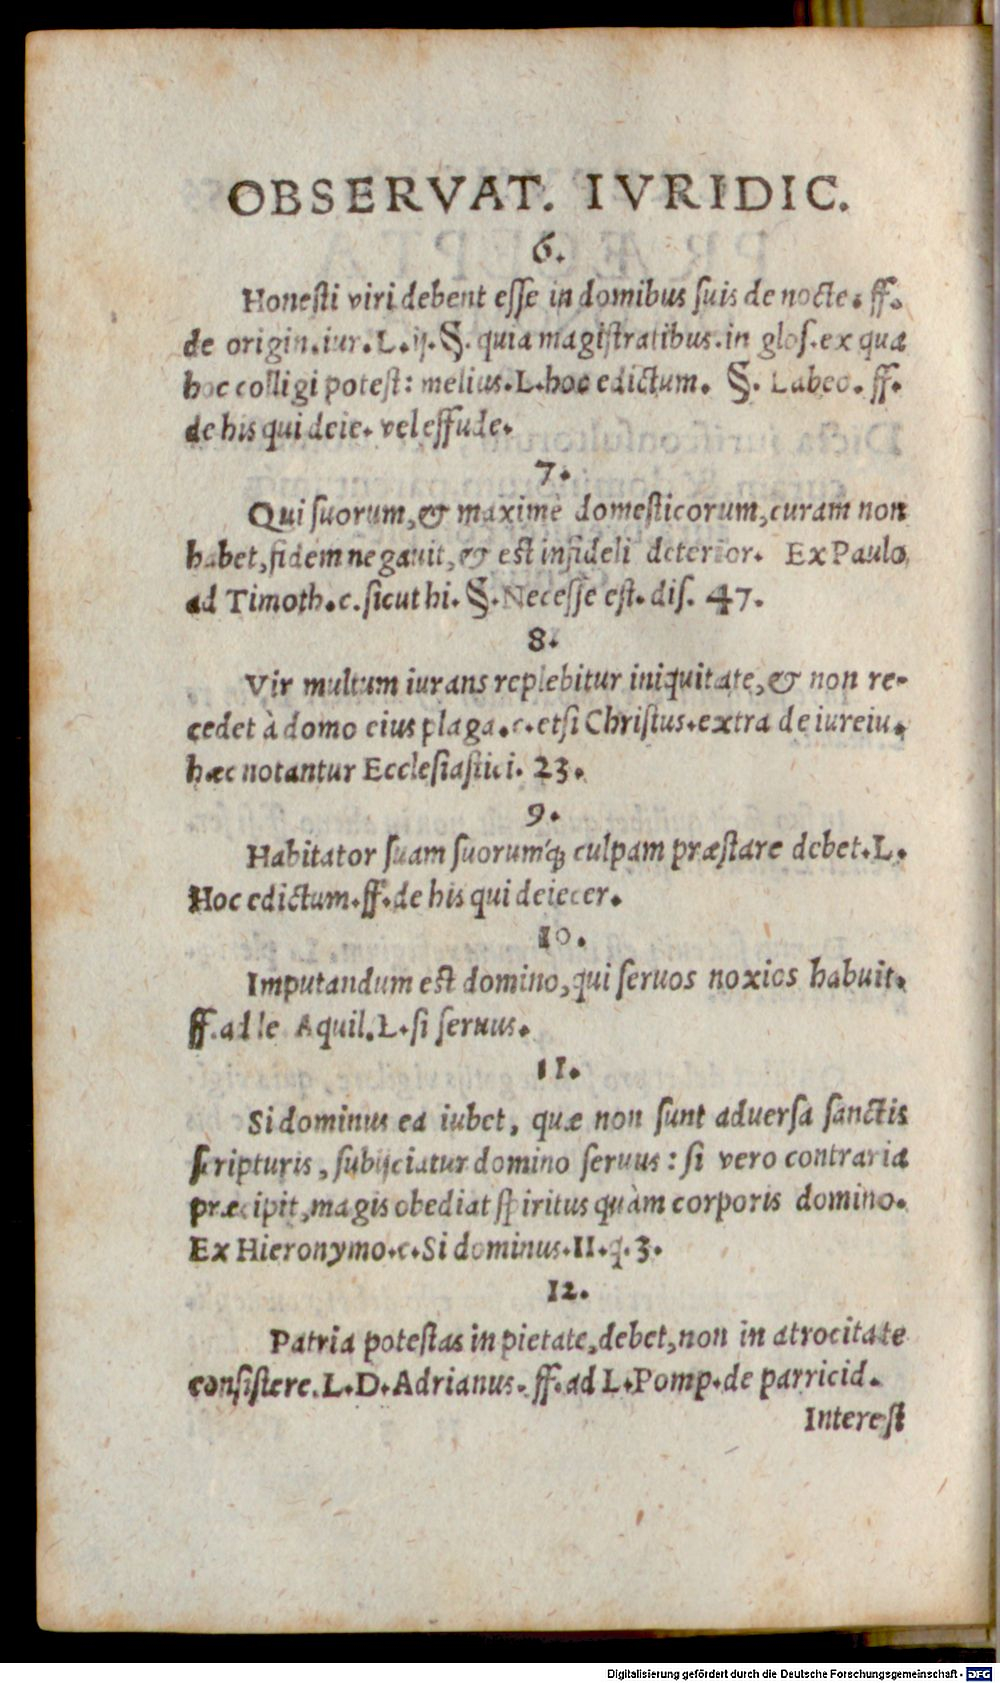 OBSERVAT. IVRIDIC.
6.
Honeſti viri debent eſſe in domibus ſuis de nocte. ff.
de origin.iur.L.ij.§. quia magiſtratibus.in gloſ.ex qua
hoc colligi poteſt: melius.L.hoc edictum. §. Labeo. ff.
de his qui deie. vel effude.
7.
Qui ſuorum,& maximè domeſticorum,curam non
habet,fidem negauit,& eſt infideli deterior. Ex Paulo,
ad Timoth.c.ſicut hi.§.Neceſſè eſt.diſ. 47.
8.
Vir multum iurans replebitur iniquitate,& non re-
cedet à domo eius plaga.c.etſi Chriſtus.extra de iureiu.
hæc notantur Eccleſiaſtici. 23.
9.
Habitator ſuam ſuorumq́; culpam præſtare debet.L.
Hoc edictum.ff.de his qui deiecer.
10.
Imputandum eſt domino,qui ſeruos noxios habuit.
ff.ad le Aquil.L.ſi ſeruus.
11.
Si dominus ea iubet, quæ non ſunt aduerſa ſanctis
ſcripturis, ſubijciatur domino ſeruus: ſi vero contraria
præcipit,magis obediat ſpiritus quàm corporis domino.
Ex Hieronymo.c.Si dominus.II.q.3.
12.
Patria poteſtas in pietate,debet,non in atrocitate
conſiſtere.L.D.Adrianus.ff.ad L.Pomp.de parricid.
Intereſt
Digitalisierung gefördert durch die Deutsche Forschungsgemeinschaft - DFG